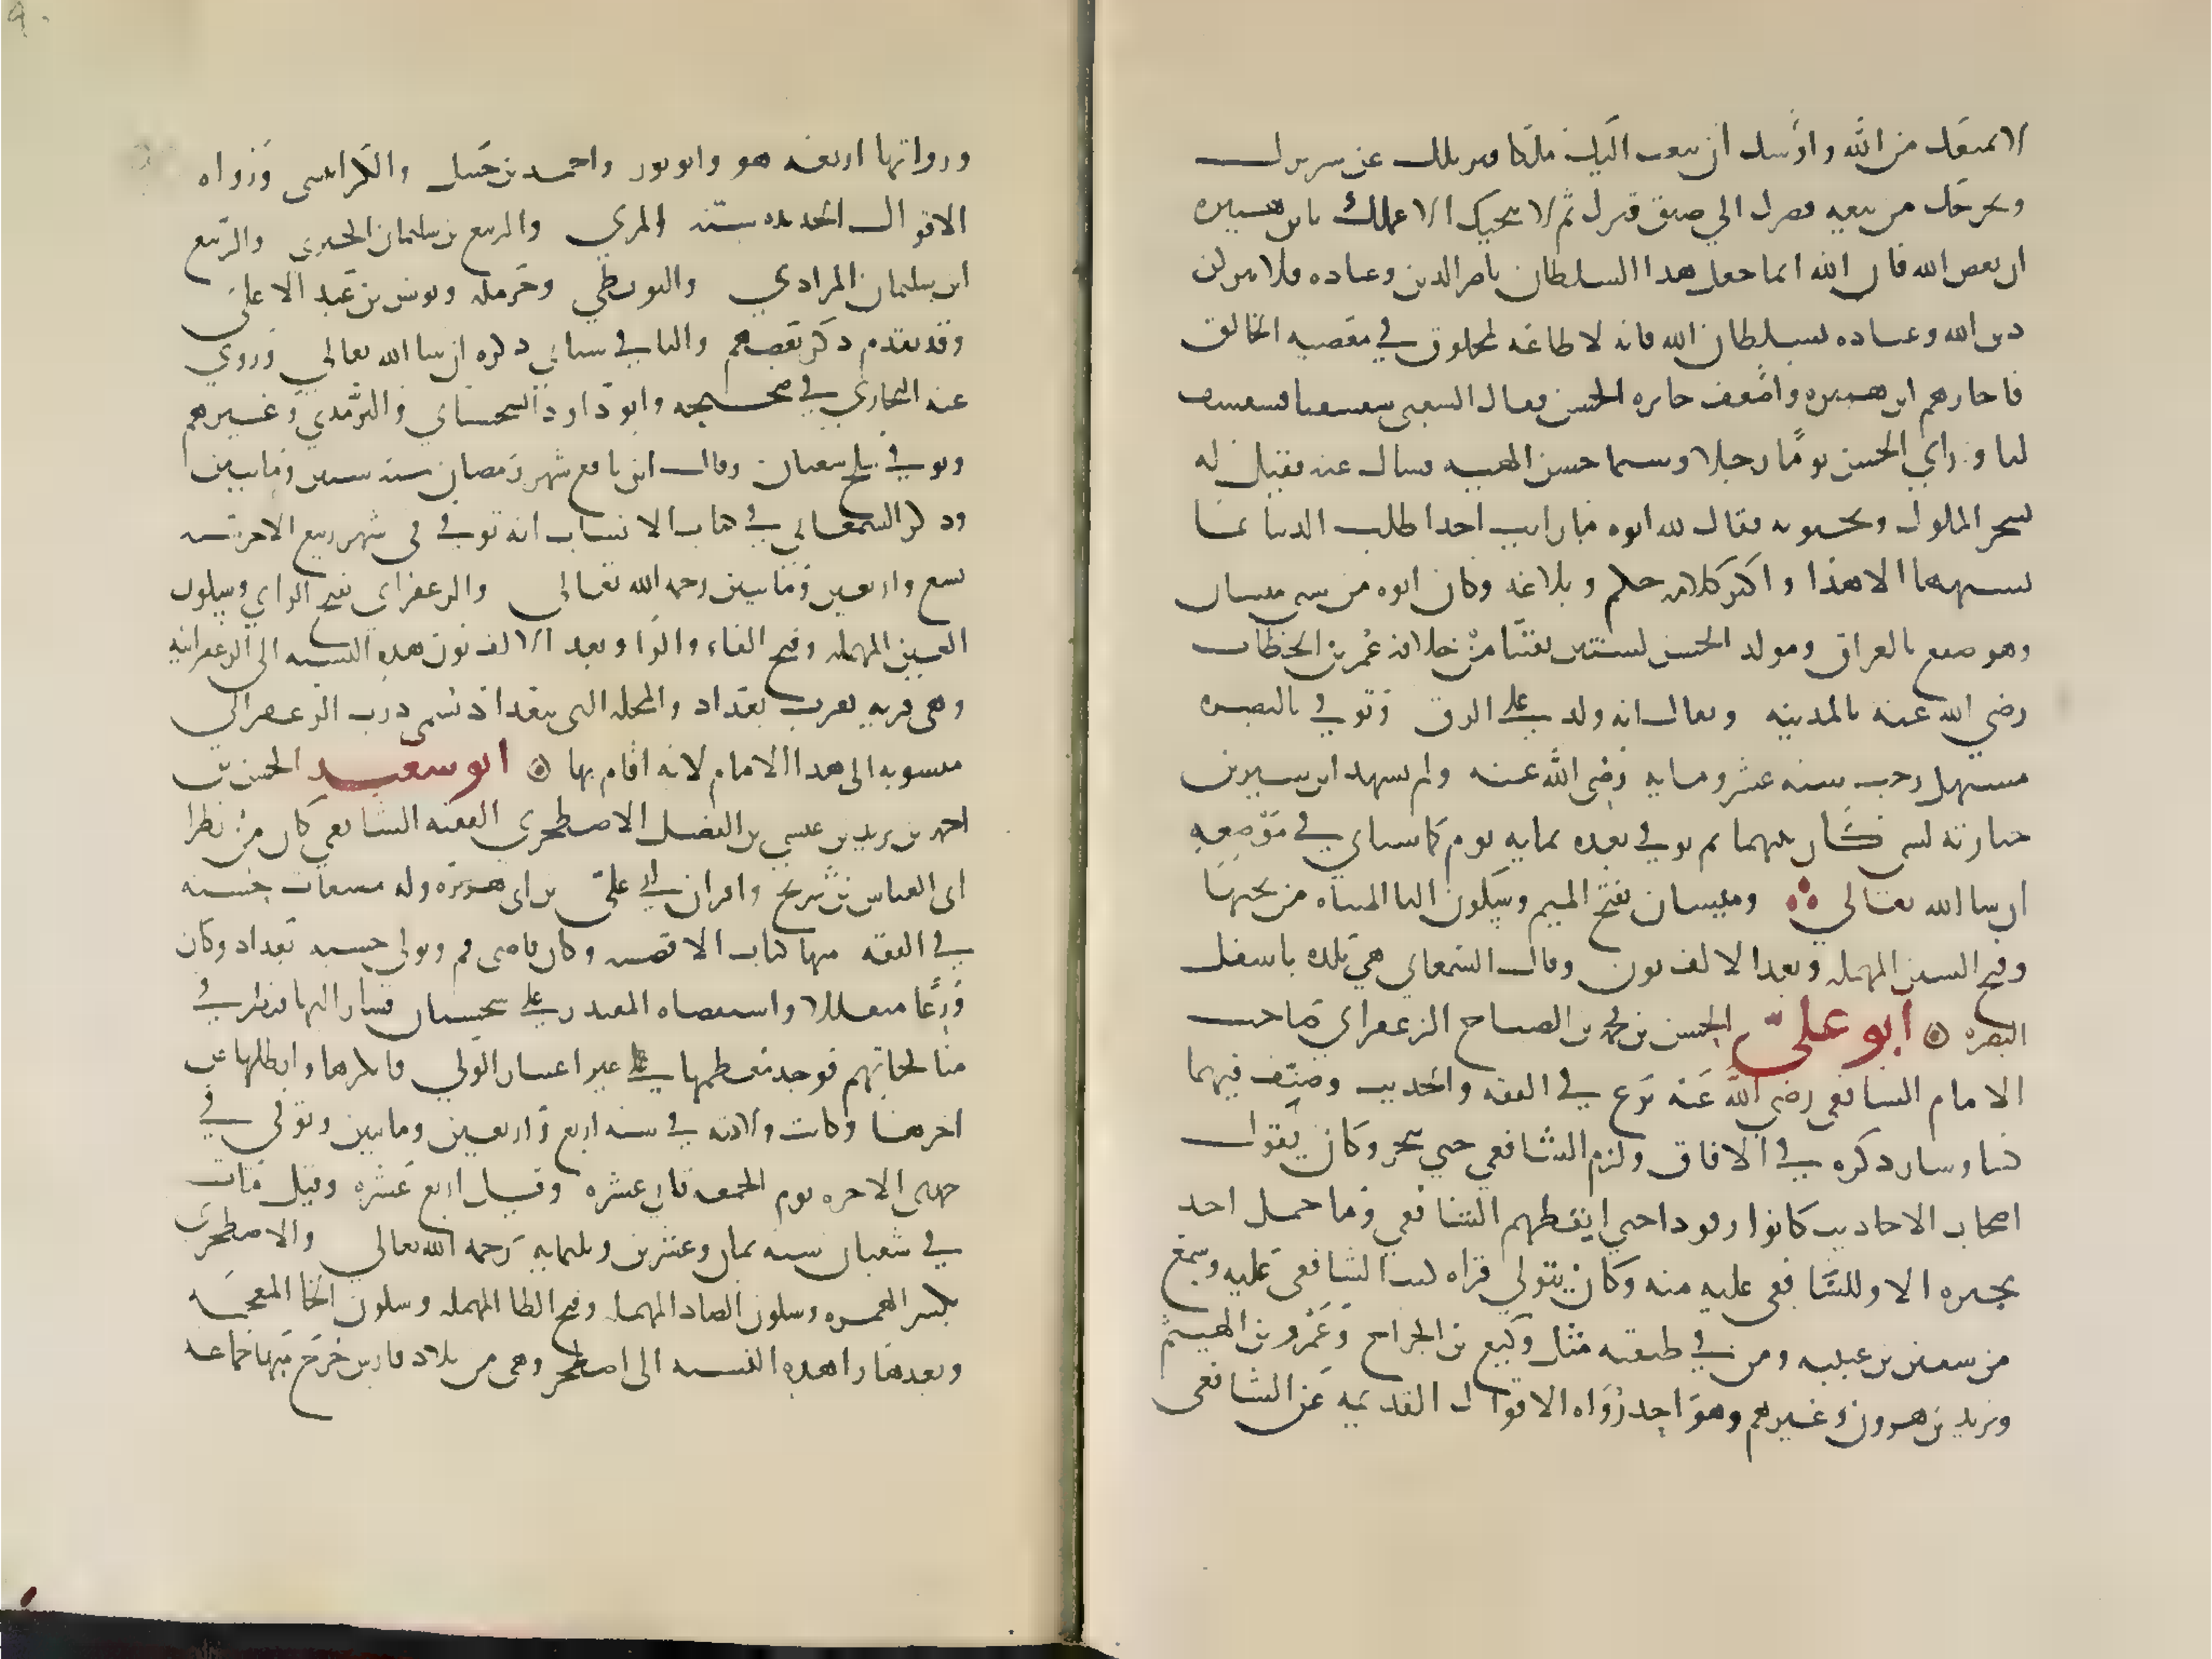 لا يمنعك من الله واوشك ان يبعث اليك ملكا فيزيلك عن سريرك
ويخرجك من سعة قصرك الي ضيق قبرك ثم لا ينجيك الا عملك يابن هبيره
ان تعص الله فان الله انما جعل هذا السلطان ناصر الدين وعباده فلا تتركن
دين الله وعباده لسلطان الله فانه لا طاعة لمخلوق في معصيه الخالق
فاجازهم ابن هبيره واضعف جايزه الحسن فقال الشعبي سفسفنا فسفسف
لنا وراي الحسن يوما رجلا وسيما حسن الهيبه فسال عنه فقيل له
يسخر للملوك ويحبونه فقال لله ابوه ما رايت احدا طلب الدنيا بما
يشبهها الا هذا واكثر كلامه حكم وبلاغه وكان ابوه من سبي ميسان
وهو صقع بالعراق ومولد الحسن لسنتين بقيتا من خلافه عمر بن الخطاب
رضي الله عنه بالمدينه ويقال انه ولد علي الرق وتوفي بالبصره
مستهل رجب سنه عشر ومايه رضي الله عنه ولم يشهد ابن سيرين
جنازته لشي كان بينهما ثم توفي بعده بمايه يوم كما سياتي في موضعه
ان شا الله تعالي ومیسان بفتح الميم وسكون اليا المثناه من تحتها
وفتح السين المهمله وبعد الالف نون وقال السمعاني هي بلده باسفل
البصره ابو علي الحسن بن محمد بن الصباح الزعفراني صاحب
الامام الشافعي رضي الله عنه برع في الفقه والحديث وصنف فيهما
كتبا وسار ذكره في الافاق ولزم الشافعي حتي تبحر وكان يقول
اصحاب الاحاديث كانوا رقودا حتي ايقظهم الشافعي وما حمل احد
محبره الا وللشافعي عليه منه وكان يتولي قراه كتب الشافعي عليه وسمع
من سفين بن عيينه ومن في طبقته مثل وكيع بن الجراح وعمرو بن الهيثم
ويزيد بن هرون وغيرهم وهو احد رواه الاقوال القديمه عن الشافعي
ورواتها اربعه هو وابو ثور واحمد بن حنبل والكرابيسي ورواه
الاقوال الجديده سته المزني والربيع بن سليمان الجيزي والربيع
ابن سليمان المرادي والبويطي وحرمله ويونس بن عبد الاعلي
وقد تقدم ذكر بعضهم والباقي سياتي ذكره ان شا الله تعالي وروي
عنه البخاري في صحيحه وابو داود السجستاني والترمذي وغيرهم
وتوفي سلخ شعبان وقال ابن نافع شهر رمضان سنه ستين ومايتين
وذكر السمعاني في كتاب الانساب انه توفي في شهر ربيع الاخر سنه
تسع واربعين ومايتين رحمه الله تعالى والزعفراني بفتح الزاي وسكون
العين المهمله وفتح الفاء والرا وبعد الالف نون هذه النسبه الى الزعفرانيه
وهي قريه بقرب بغداد والمحله التي ببغداد تسمى درب الزعفراني
منسوبه الى هذا الامام لانه اقام بها ابو سعيد الحسن بن
احمد بن يزيد بن عيسي بن الفضل الاصطخري الفقيه الشافعي كان من نظرا
ابي العباس بن سريج واقران ابي علي بن ابي هريره وله مصنفات حسنه
في الفقه منها كتاب الاقضيه وكان قاضي قم وتولي حسبه بغداد وكان
ورعا متقللا واستقضاه المقتدر علي سجستان فسار اليها فنظر في
مناكحاتهم فوجد معظمها علي غير اعتبار الولي فانكرها وابطلها عن
اخرها وكانت ولادته في سنه اربع واربعين ومايتين وتوفي في
جمادى الاخره يوم الجمعه ثاني عشره وقيل رابع عشره وقيل مات
في شعبان سنه ثمان وعشرين وثلثمايه رحمه الله تعالي والاصطخري
بكسر الهمزه وسكون الصاد المهمله وفتح الطا المهمله وسكون الخا المعجمه
وبعدها را هذه النسبه الى اصطخر وهي من بلاد فارس خرج منها جماعه